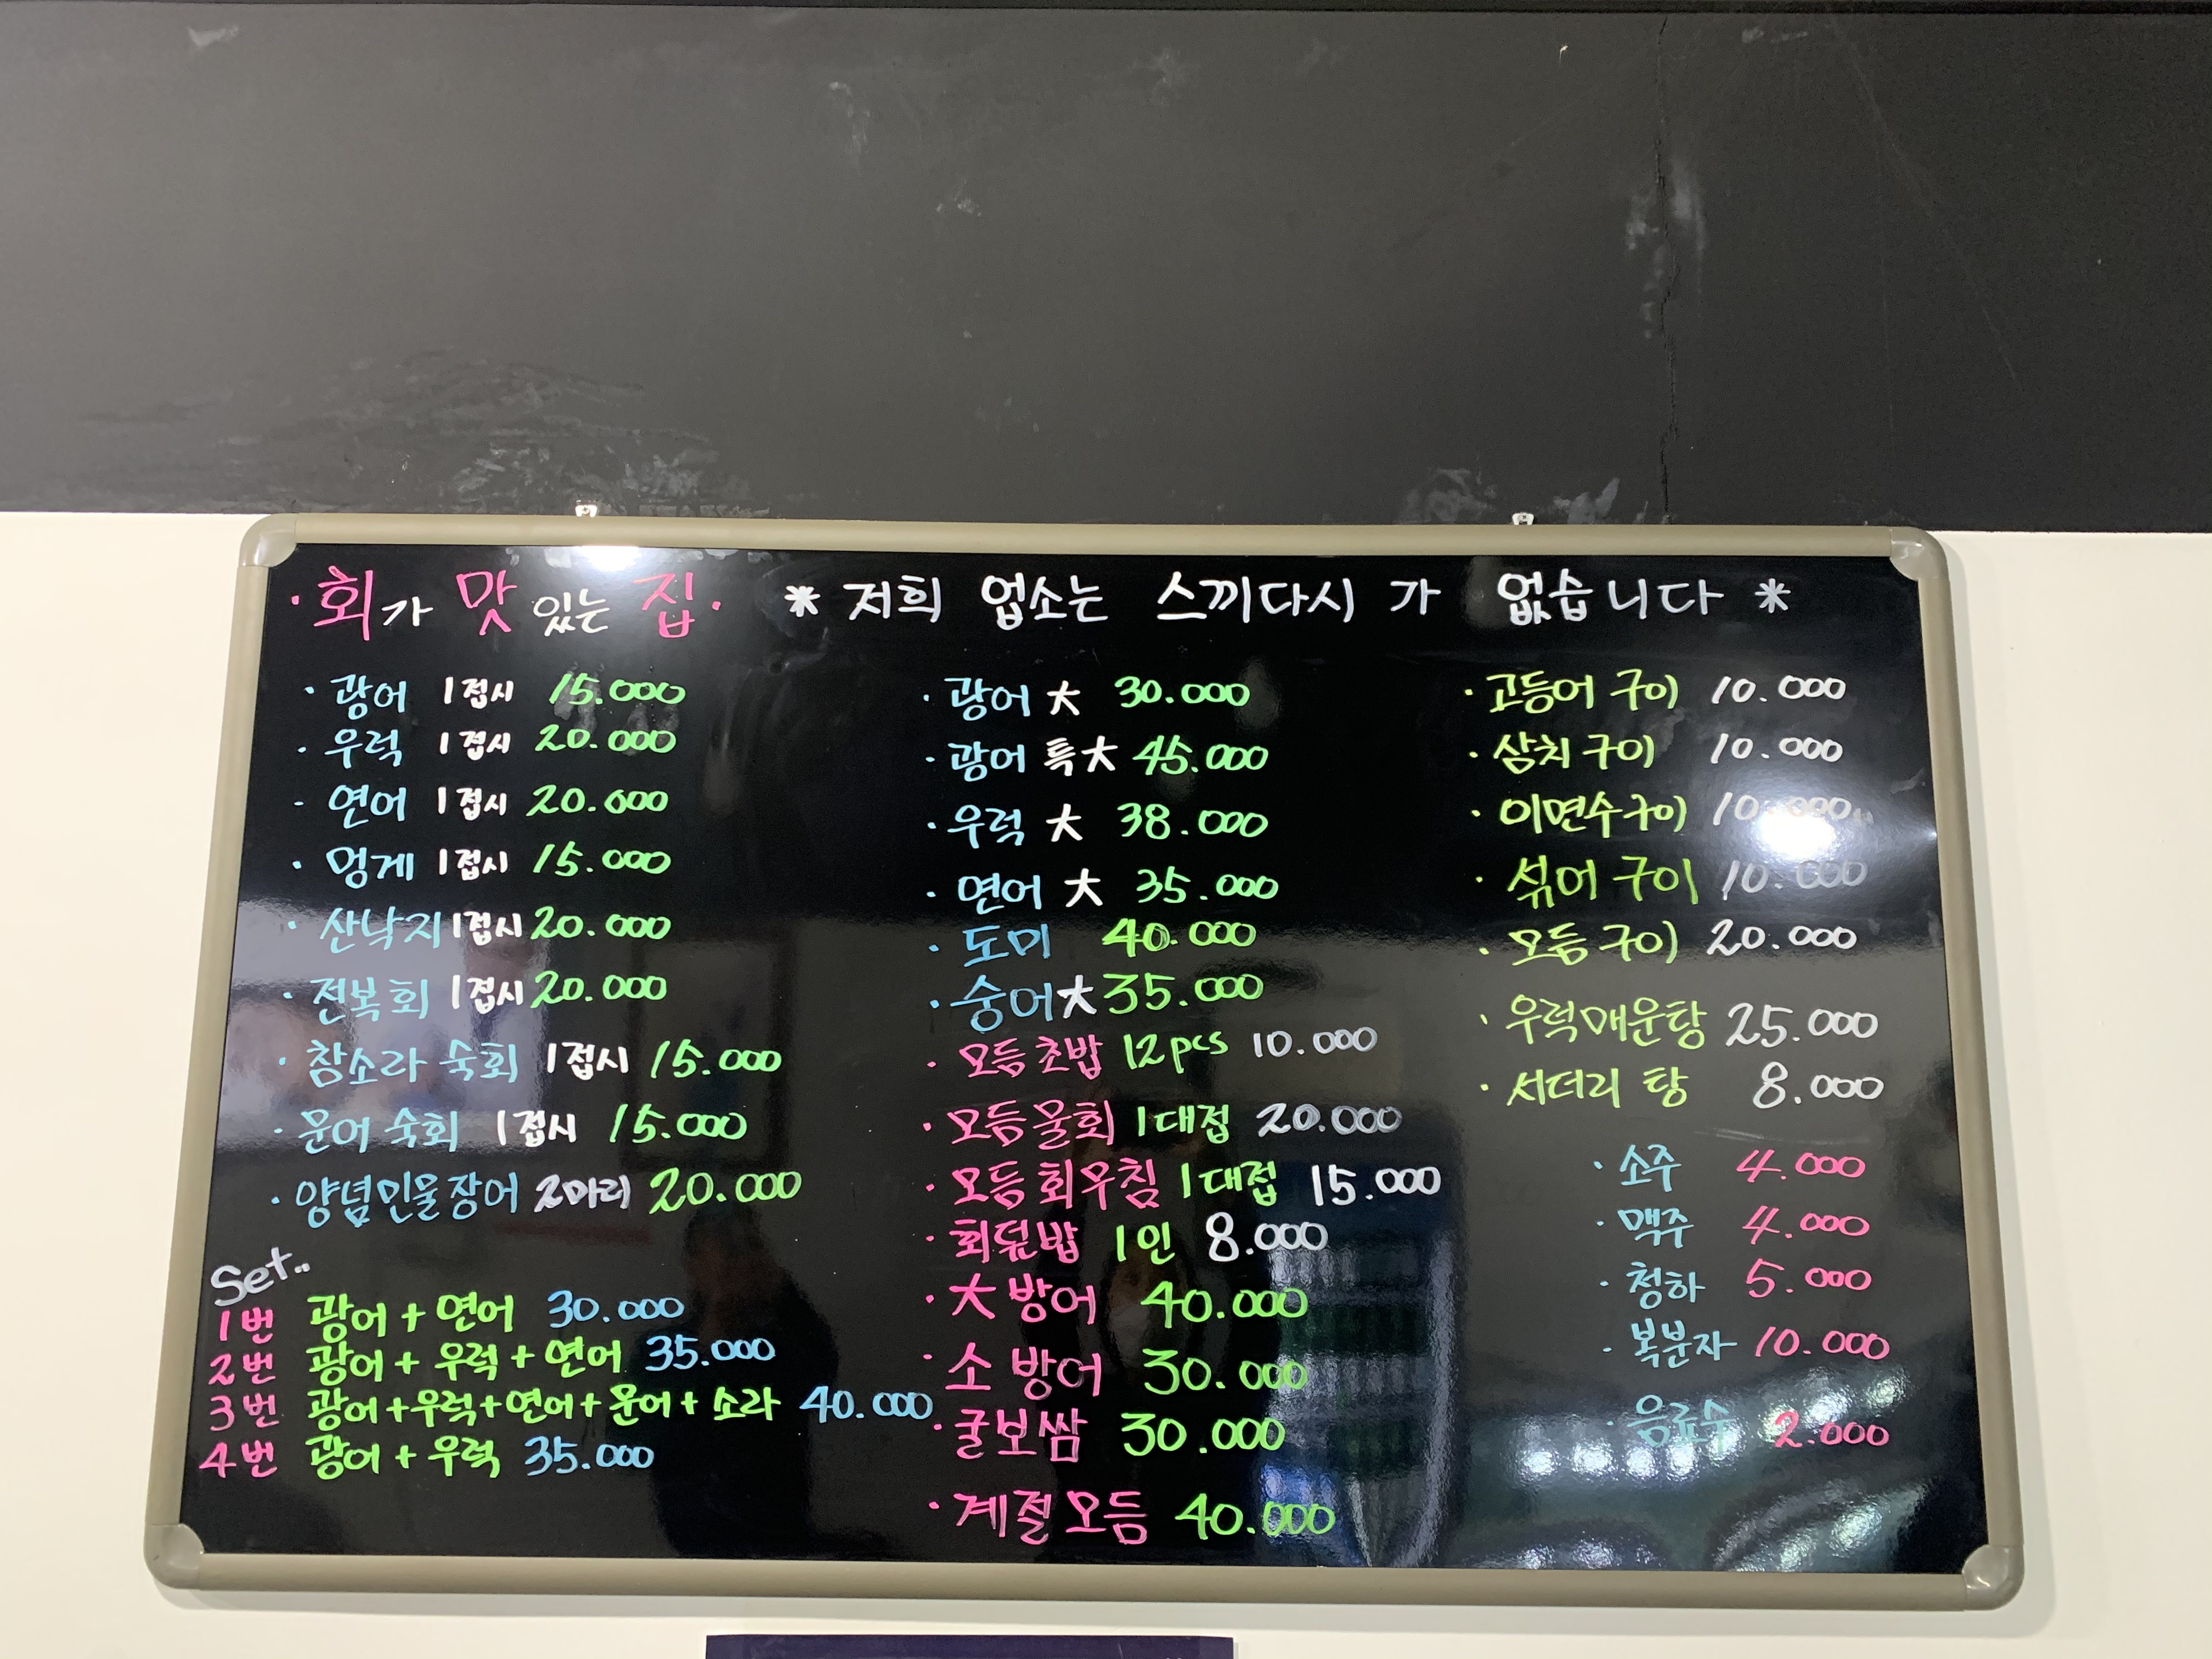 ·회가 맛있는 집·
* 저희 업소는 스끼다시 가 없습니다 *
· 광어 1접시 15.000
· 우럭 1접시 20.000
· 연어 1접시 20.000
· 멍게 1접시 15.000
· 산낙지 1접시 20.000
· 전복회 1접시 20.000
· 참소라 숙회 1접시 15.000
· 문어 숙회 1접시 15.000
· 양념민물장어 2마리 20.000
Set..
1번 광어 + 연어 30.000
2번 광어 + 우럭 + 연어 35.000
3번 광어+우럭+연어+문어+소라 40.000
4번 광어 + 우럭 35.000
· 광어 大 30.000
· 광어 특大 45.000
· 우럭 大 38.000
· 연어 大 35.000
· 도미 40.000
· 숭어大 35.000
· 모듬초밥 12pcs 10.000
· 모듬물회 1대접 20.000
· 모듬회무침 1대접 15.000
· 회덮밥 1인 8.000
· 大 방어 40.000
· 소 방어 30.000
· 굴보쌈 30.000
· 계절모듬 40.000
· 고등어 구이 10.000
· 삼치구이 10.000
· 이면수구이 10.000
· 섞어 구이 10.000
· 모듬구이 20.000
· 우럭매운탕 25.000
· 서더리 탕 8.000
· 소주 4.000
· 맥주 4.000
· 청하 5.000
· 복분자 10.000
· 음료수 2.000